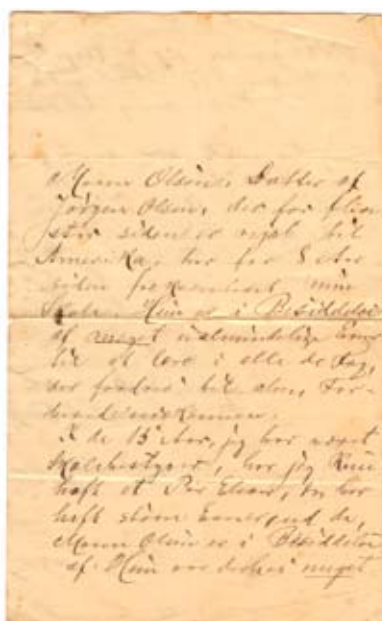 Olsen, Datter af
Jørgen Olsen, der for flere
siden er rejst til
Amerika, har for 8 Aar
siden frekventeret min
Skole. Hun er i Besiddelse
af meget ualmindelige Evner
til at lære i alle de Fag,
der fordres til alm.
I de 15 Aar, jeg har været
Skolebestyrer, har jeg kun
haft et Par Elever, der har
haft større Evner end de,
Olsen er i Besiddelse
af. Hun var derhos meget